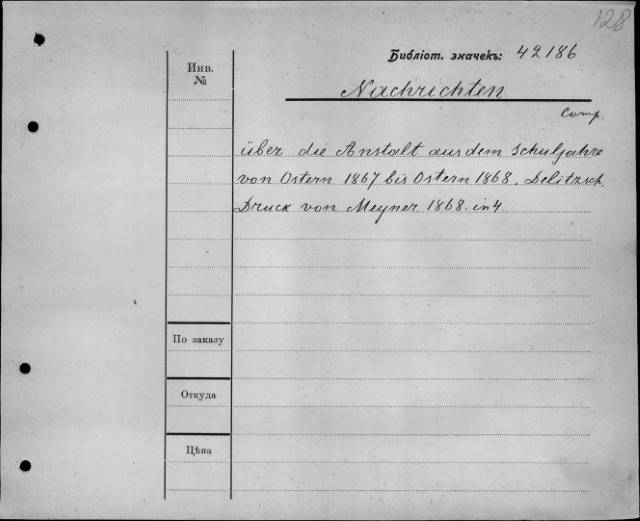 128
Библіот. значекъ: 42186
Инв.
№
Nachrichten
Comp.
über die Anstalt aus dem Schuljahre
von Ostern 1867 bis Ostern 1868. Delitzsch.
Druck von Meyner 1868. in 4
По заказу
Откуда
Цѣна